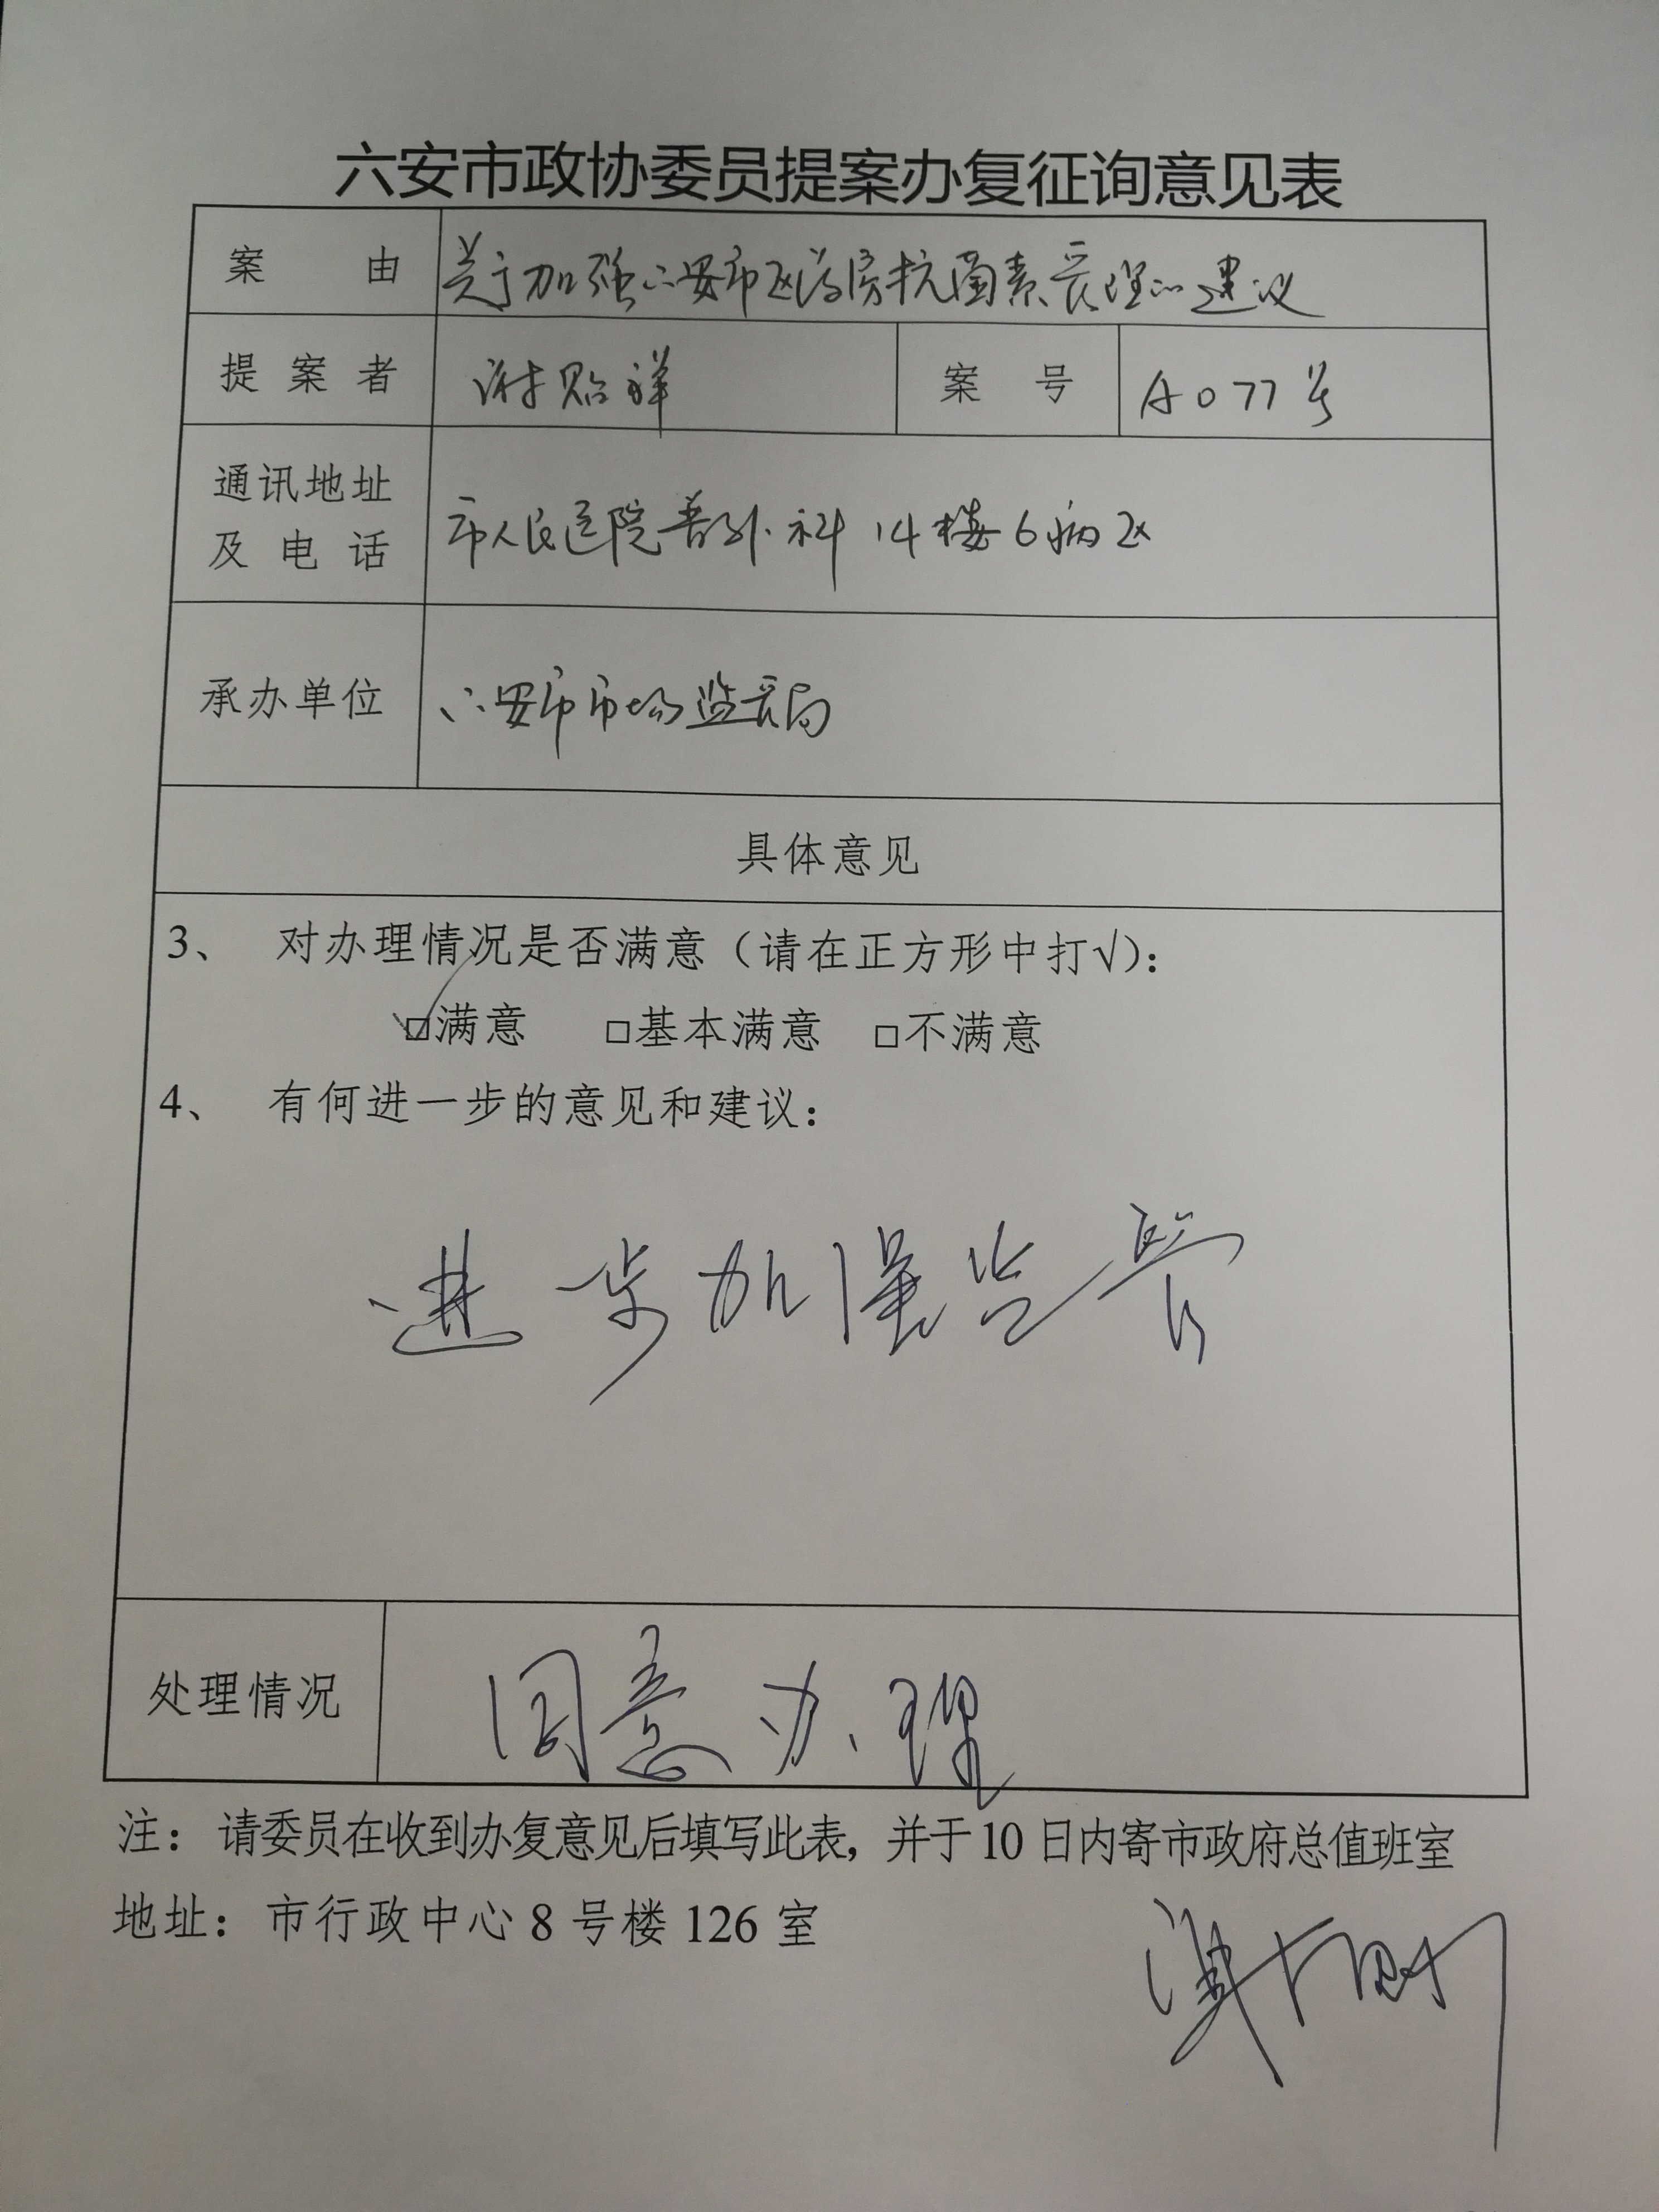 六安市政协委员提案办复征询意见表
案由 关于加强六安市区药房抗菌素管理的建议
提案者 谢贻祥 案号 A077号
通讯地址及电话 市人民医院普外科 14楼6病区
承办单位 六安市市场监管局
具体意见
3、 对办理情况是否满意（请在正方形中打√）：
☑满意 □基本满意 □不满意
4、 有何进一步的意见和建议：
进一步加强监管
处理情况 同意办理
注：请委员在收到办复意见后填写此表，并于10日内寄市政府总值班室
地址：市行政中心8号楼126室